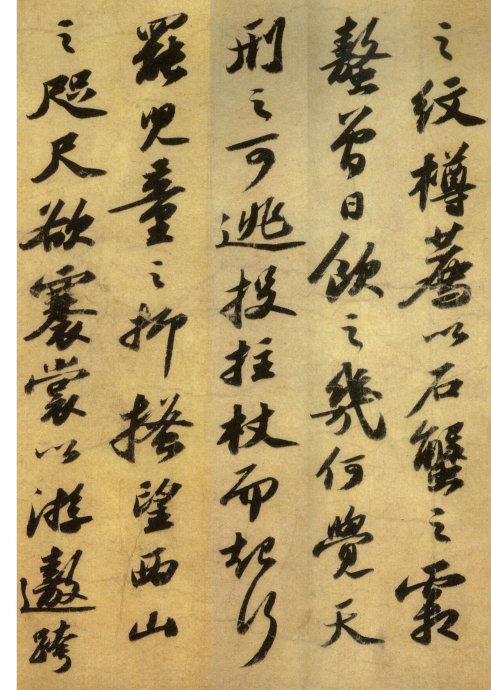 之纹樽薦以石蟹之霜
螯曾日飲之幾何覺天
刑之可逃投拄杖而起行
罷兒童之抑搔望西山
之咫尺欲褰裳以游遨跨